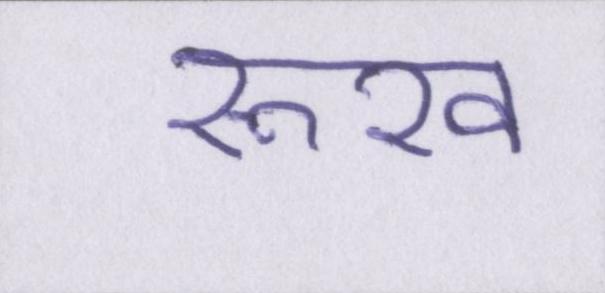 रूख